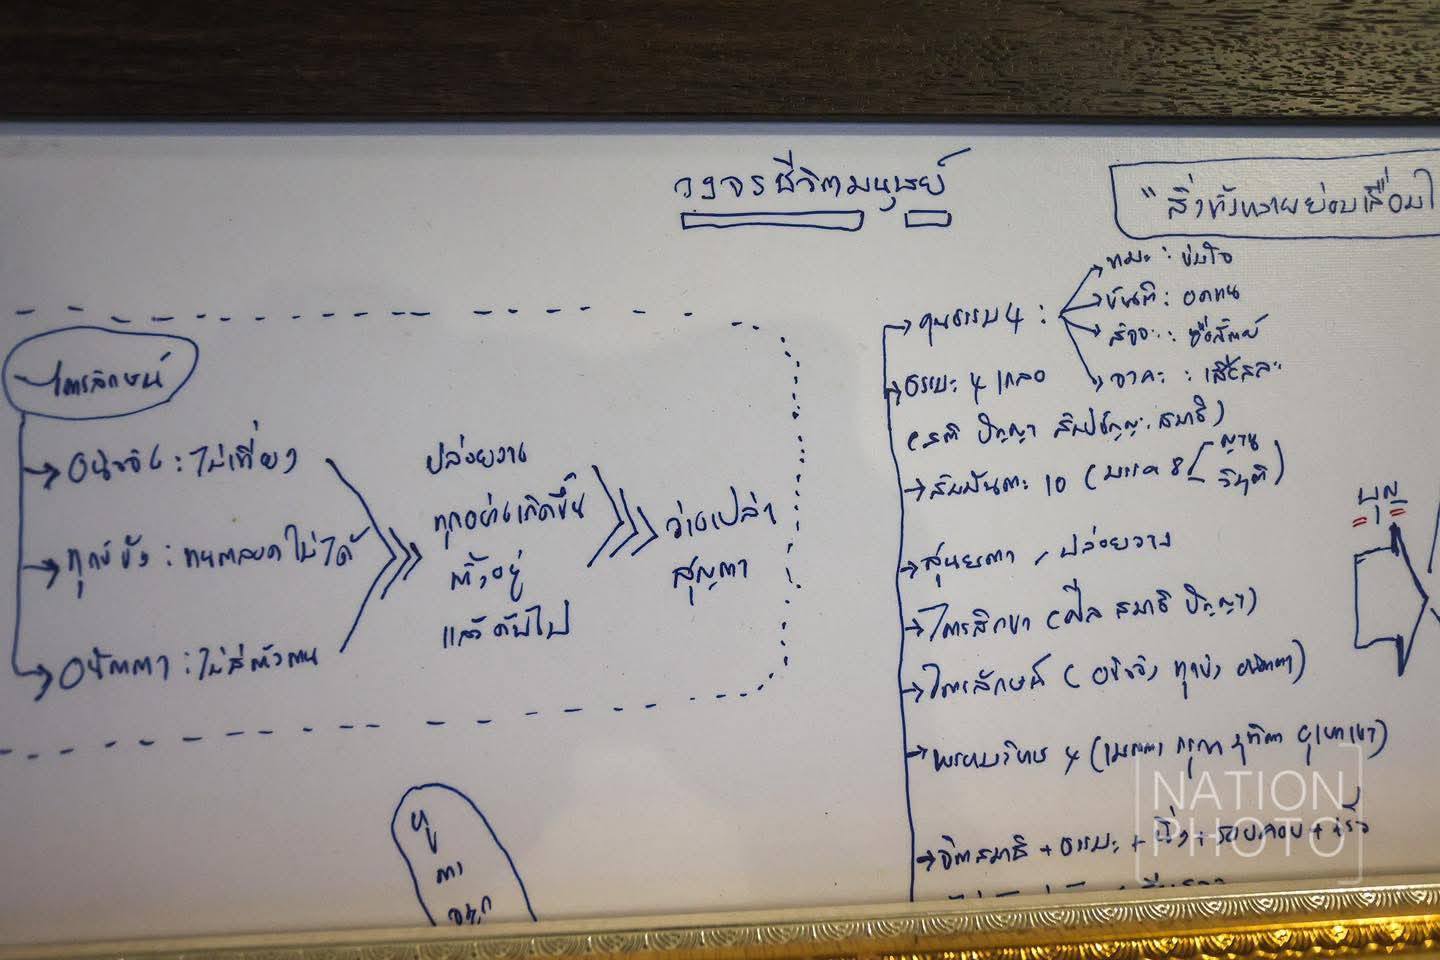 วงจรชีวิตมนุษย์
"สิ่งทั้งหลายย่อมเสื่อมไ
ไตรลักษณ์
อนิจจัง : ไม่เที่ยง
ทุกข์ขัง : ทนตลอดไม่ได้
อนัตตา : ไม่มีตัวตน
ปล่อยวาง
ทุกอย่างเกิดขึ้น
ตั้งอยู่
แล้วดับไป
ว่างเปล่า
สุญตา
หู
ตา
จมูก
คุณธรรม 4 :
ทมะ : ข่มใจ
ขันติ : อดทน
สัจจะ : ซื่อสัตย์
จาคะ : เสียสละ
ธรรมะ 4 เกลอ
(สติ ปัญญา สัมปชัญญะ สมาธิ)
สัมมัตตะ 10 (มรรค 8
ญาณ
วิมุติ)
สุนยตา, ปล่อยวาง
ไตรสิกขา (ศีล สมาธิ ปัญญา)
ไตรลักษณ์ (อนิจจัง ทุกขัง อนัตตา)
พรหมวิหาร 4 (เมตตา กรุณา มุทิตา อุเบกขา)
จิตสมาธิ + ธรรมะ + นิ่ง + รอบคอบ + เร็ว
บุญ
NATION
PHOTO